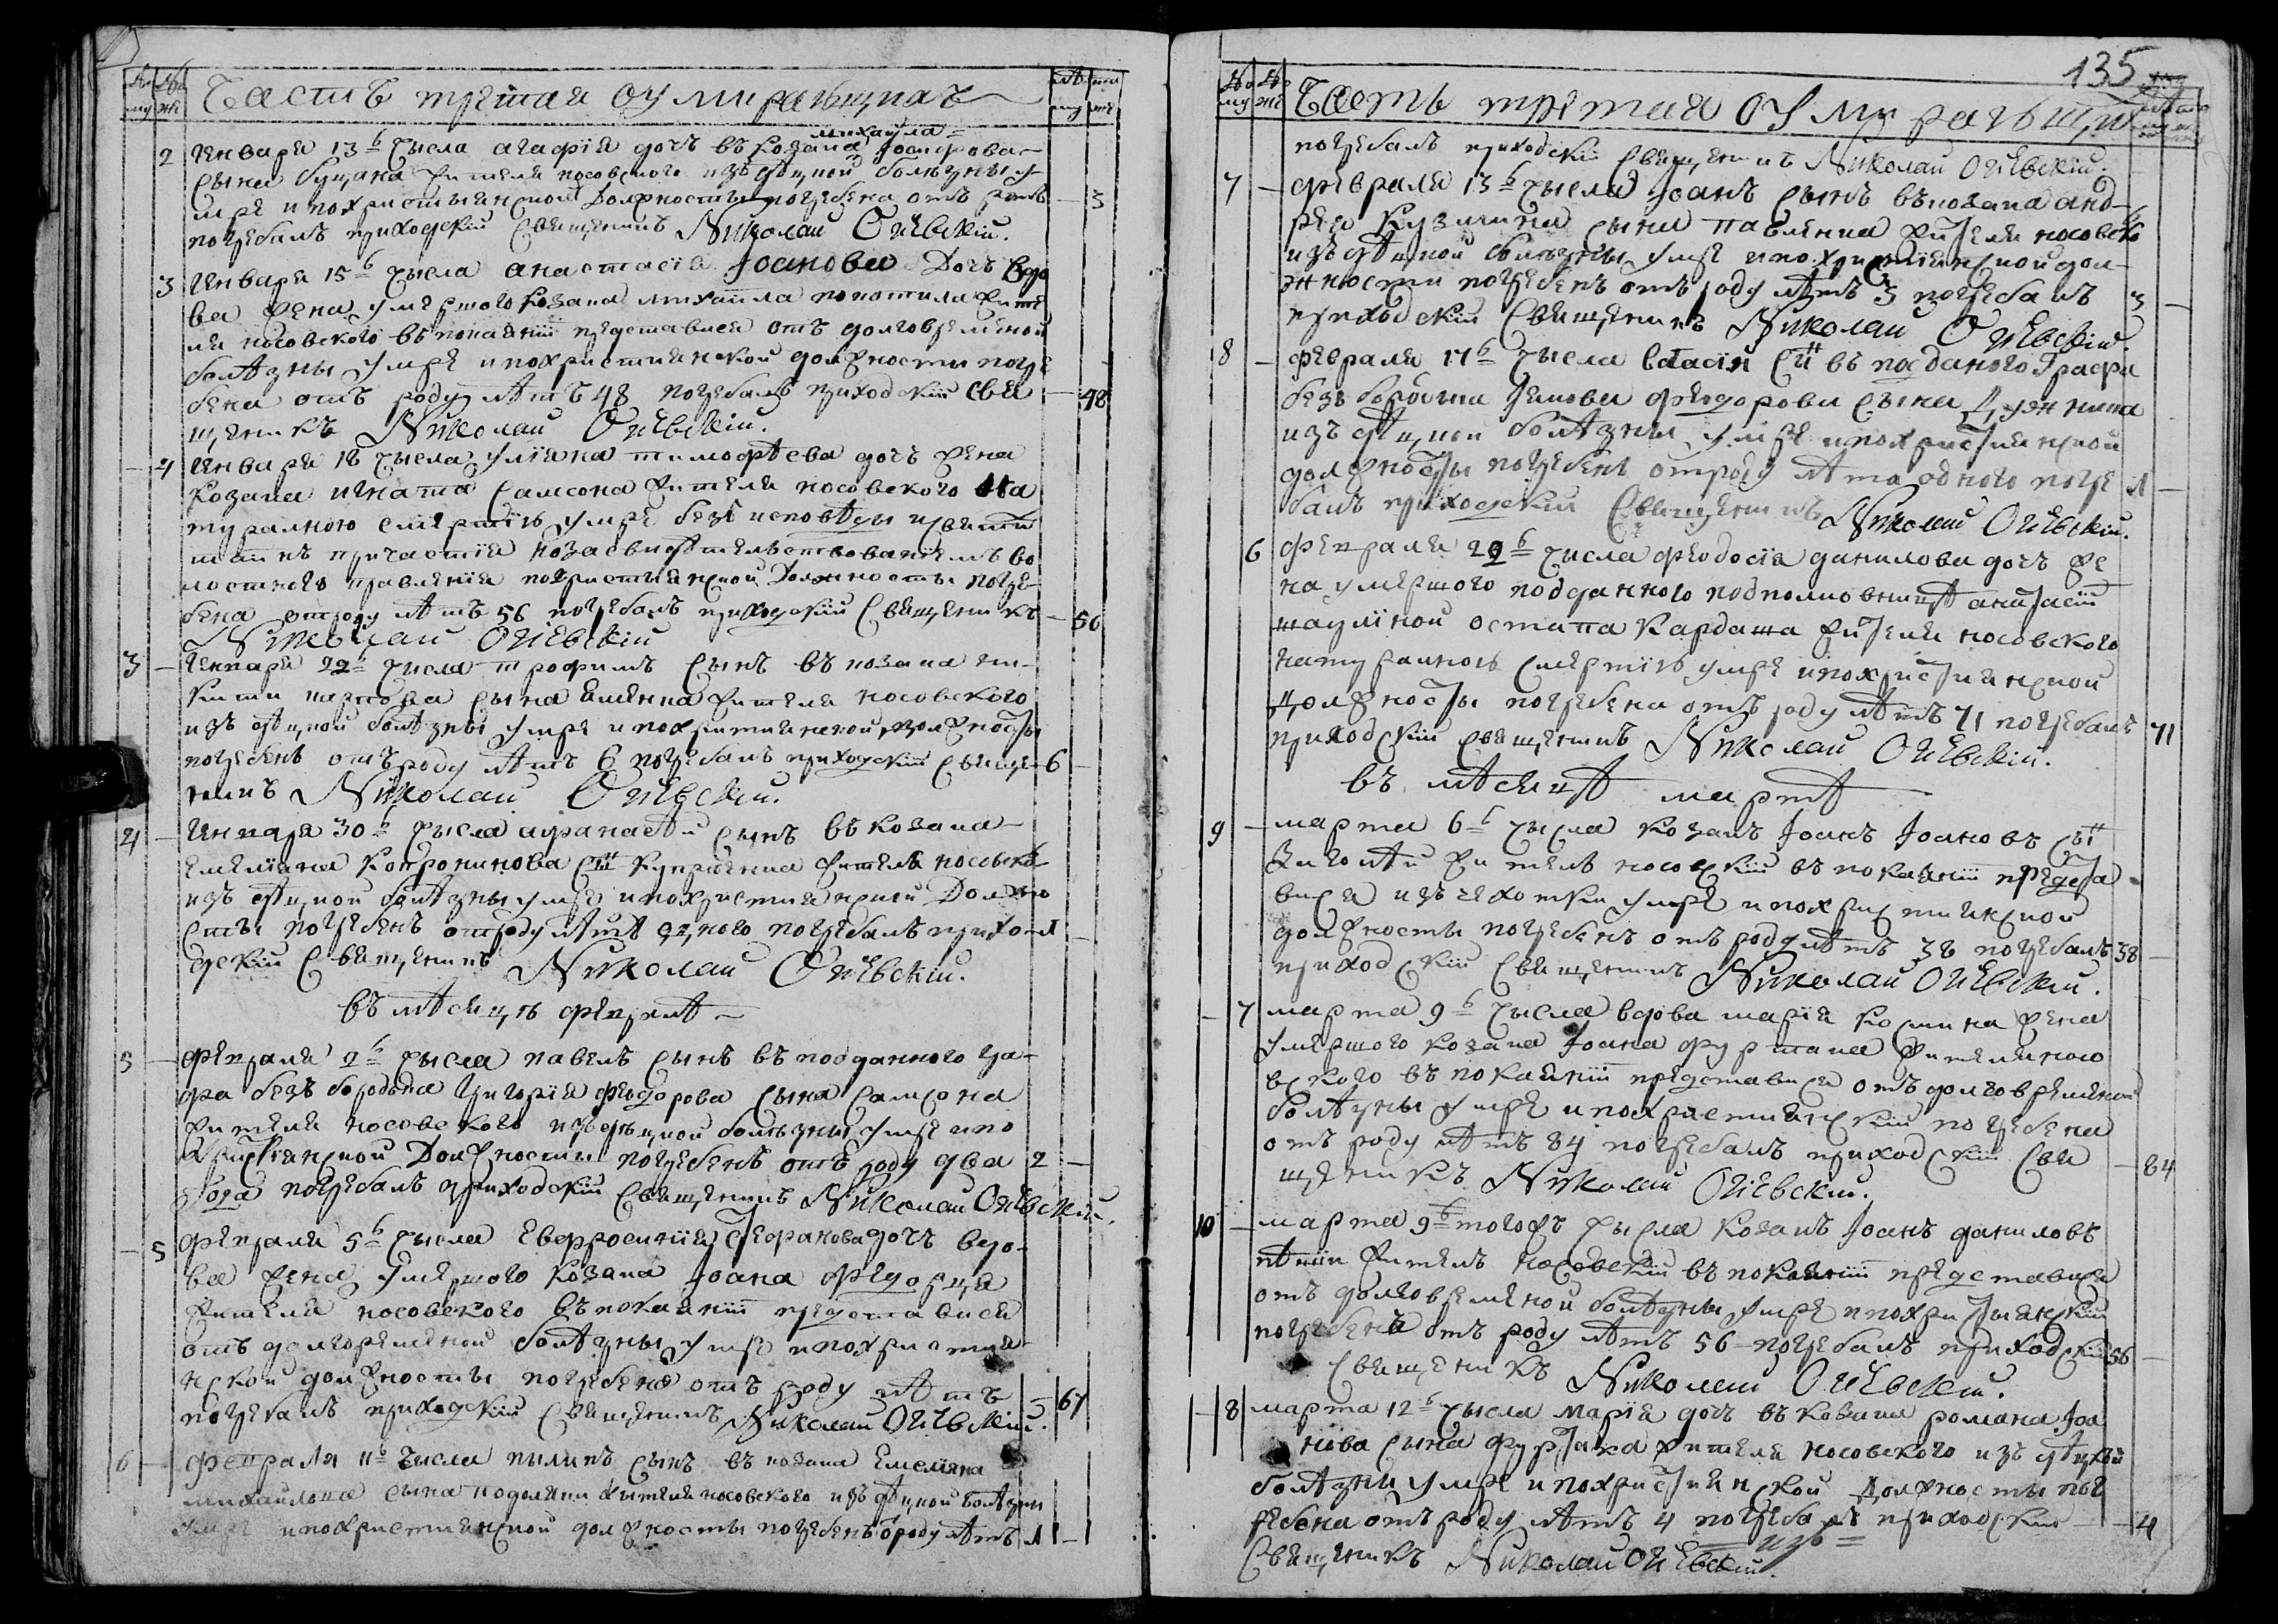 Часть третая оумиравщихъ
михаила
2 Января 13ъ числа агафія дочъ въ козака
сына буцана жителя носовского изъ болѣзны у-
мре и похристыянской должносты погребена отъ роду 3
погребалъ приходскій священникъ Николай Огіевскій.
3 Января 15ъ числа анастасія Іоанова дочъ вдо
ва жена умершого козака михаила жите
ля носовского въ покаяніи представися отъ долговременной
болѣзны умре и похристиянской должности погре
бена отъ роду лѣтъ 48 погребалъ приходскій свя 48
щенникъ Николай Огіевскій.
4 Января 18 числа уліяна тимофѣева дочъ жена
козака игната самсона жителя носовского на
туралною смертію умре безъ исповѣды и святи
причастія позасвидѣтелствованіемъ во
лостного правленія похристыянской должносты погре
бена отроду лѣтъ 56 погребалъ приходскій священникъ 56
Николай Огіевскій
3 Января 22ъ числа трофимъ сынъ въ козака ни-
киты сына жителя носовского
изъ болѣзны умре и похритиянской должносты
погребенъ отъ роду лѣтъ 6 погребалъ приходскій священ 6
никъ Николай Огіевскій.
4 Января 30ъ числа афанасѣй сынъ въ козака
емеліяна снъ купріенка жителя носовско
изъ болѣзны умре и похристиянской должно
сты погребенъ отроду лѣта одного погребалъ прихо 1
дскій священникъ Николай Огіевскій.
въ мѣсицѣ февралѣ
5 февраля 2ъ числа павелъ сынъ въ подданного гра-
фа безбородька григорія феодорова сына самсона
жителя носовского изъ болѣзны умре и по
християнской должносты погребенъ отъ роду два 2
года погребалъ приходскій священникъ Николай Огіевскій.
5 февраля 5ъ числа евфросинія стефанова дочъ вдо-
ва жена умершого козака Іоана федорца
жителя носовского въ покаяніи представися
отъ долговременной болѣзны умре и похристия
нской должносты погребена отъ роду лѣтъ 67
погребалъ приходскій священникъ Николай Огіевскій.
6 февраля 11ъ числа пилипъ сынъ въ козака Емеліяна
михаилова сына жытеля носовского изъ болѣзни
умре и похристиянской должносты погребенъ ѿроду лѣтъ 1
135
Часть третая оумиравщих
погребалъ приходскій священникъ Николай Огіевскій.
7 февраля 13ъ числа Іоанъ сынъ въ козака анд-
рея кузмина сына павленка жителя носовск
изъ болѣзны умре и похристиянской дол-
жности погребенъ отъ роду лѣтъ 3 погребалъ 3
приходскій священникъ Николай Огіевскій.
8 февраля 17ъ числа власій снъ въ подданого графа
безбородька феодорова сына
изъ болѣзны умре и похристиянской
должносты погребенъ отроду лѣта одного погре 1
балъ приходскій священникъ Николай Огіевскій.
6 февраля 22ъ числа феодосія данилова дочъ же
на умершого подданного подполковницѣ анастасіи
остапа кардаша жителя носовского
натуралною смертію умре и похристиянской
должносты погребена отъ роду лѣтъ 71 погребалъ 71
приходскій священникъ Николай Огіевскій.
въ мѣсицѣ мартѣ
9 марта 6ъ числа козакъ Іоанъ Іоановъ снъ
житель носовскій въ покаяніи предста
вися изъ чахотки умре и похристиянской
должносты погребенъ отъ роду лѣтъ 38 погребалъ 38
приходскій священникъ Николай Огіевскій.
7 марта 9ъ числа вдова марія жена
умершого козака Іоана фурмана жителя носо
вского въ покаяніи представися отъ долговременной
болѣзны умре и похристиянскій погребена
отъ роду лѣтъ 84 погребалъ приходскій свя 84
щенникъ Николай Огіевскій.
10 марта 9ъ тогожъ числа козакъ Іоанъ даниловъ
житель носовскій въ покаяніи представися
отъ долговременной болѣзны умре и похристиянскій
погребенъ отъ роду лѣтъ 56 погребалъ приходскій 56
священникъ Николай Огіевскій.
8 марта 12ъ числа марія дочъ въ козака романа Іоа
нова сына жителя носовского изъ
болѣзны умре и похристиянской должносты пог
ребена отъ роду лѣтъ 4 погребалъ приходскій 4
священникъ Николай Огіевскій.